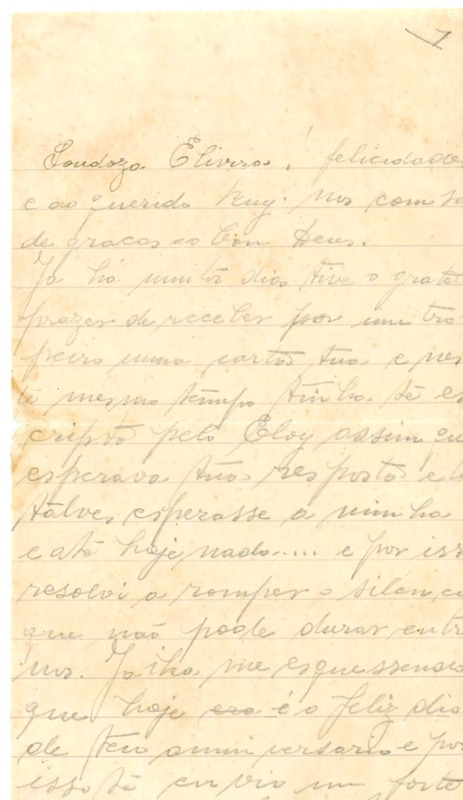 1
Saudoza Elivira! felicidade
e ao querido Ruy. nos com sa
de graças ao bon Deus.
Ja há muitos dias tive o grato
prazer de receber por um tro
peiro uma carta tua e nes
te mesmo tempo tinha te es
cripto pelo Eloy assim qu
esperava tua resposta e t
talves esperasse a minha
e até hoje nada..... e por iss
resolvi a romper o silenci
que não pode durar entr
nos. Ja iha me esquessendo
que hoje era é o feliz dia
de teu anniversario e por
isso te envio um forte